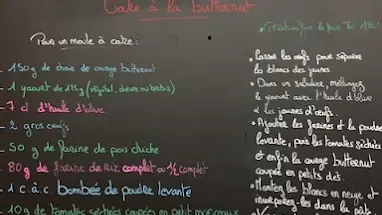 Cake à la butternut
Pour un moule à cake:
- 150g de chair de courge butternut
- 1 yaourt de 125g (végétal, chèvre ou brebis)
- 7 cl d'huile d'olive
- 2 gros œufs
- 50 g de farine de pois chiche
- 80g de farine de riz complet ou ½ complet
- 1 c.à.c. bombée de poudre levante
- 10g de tomates séchées coupées en petit morceaux
• Casser les œufs pour séparer
les blancs des jaunes
• Dans un saladier, mélangez
le yaourt avec l'huile d'olive
• les jaunes d'œufs.
• Ajouter les farines et la poudre
levante, puis les tomates séchées
et enfin la courge butternut
coupée en petits dés.
• Montez les blancs en neige et
incorporez-les dans la pâte